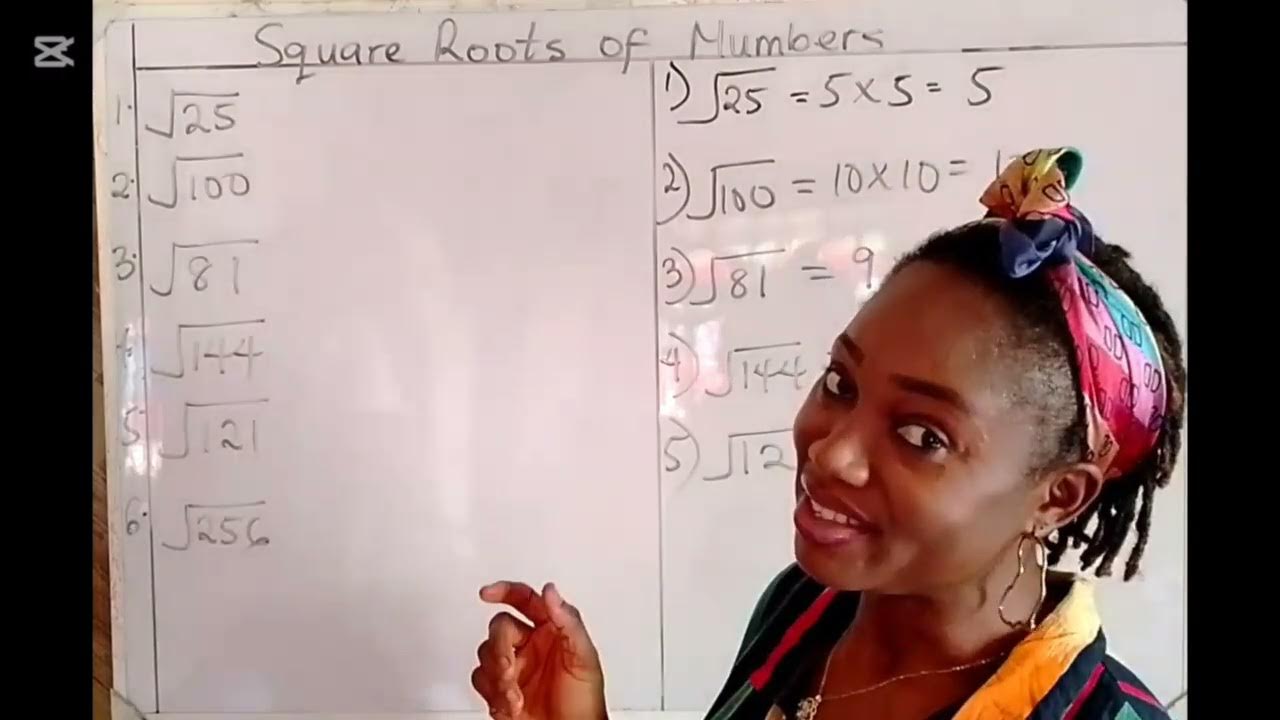 Square Roots of Numbers
1. √25
2. √100
3. √81
4. √144
5. √121
6. √256
1) √25 = 5×5 = 5
2) √100 = 10×10 =
3) √81 = 9
4) √144
5) √12